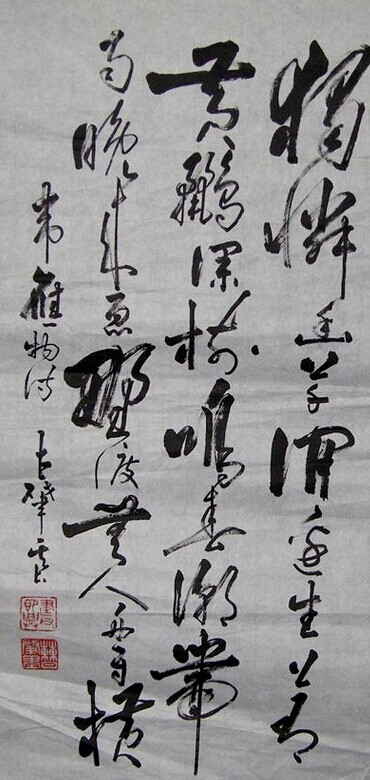 獨憐幽草澗邊生上有
黄鸝深樹鳴春潮帶
雨晚来急野渡無人舟自横
韋應物詩